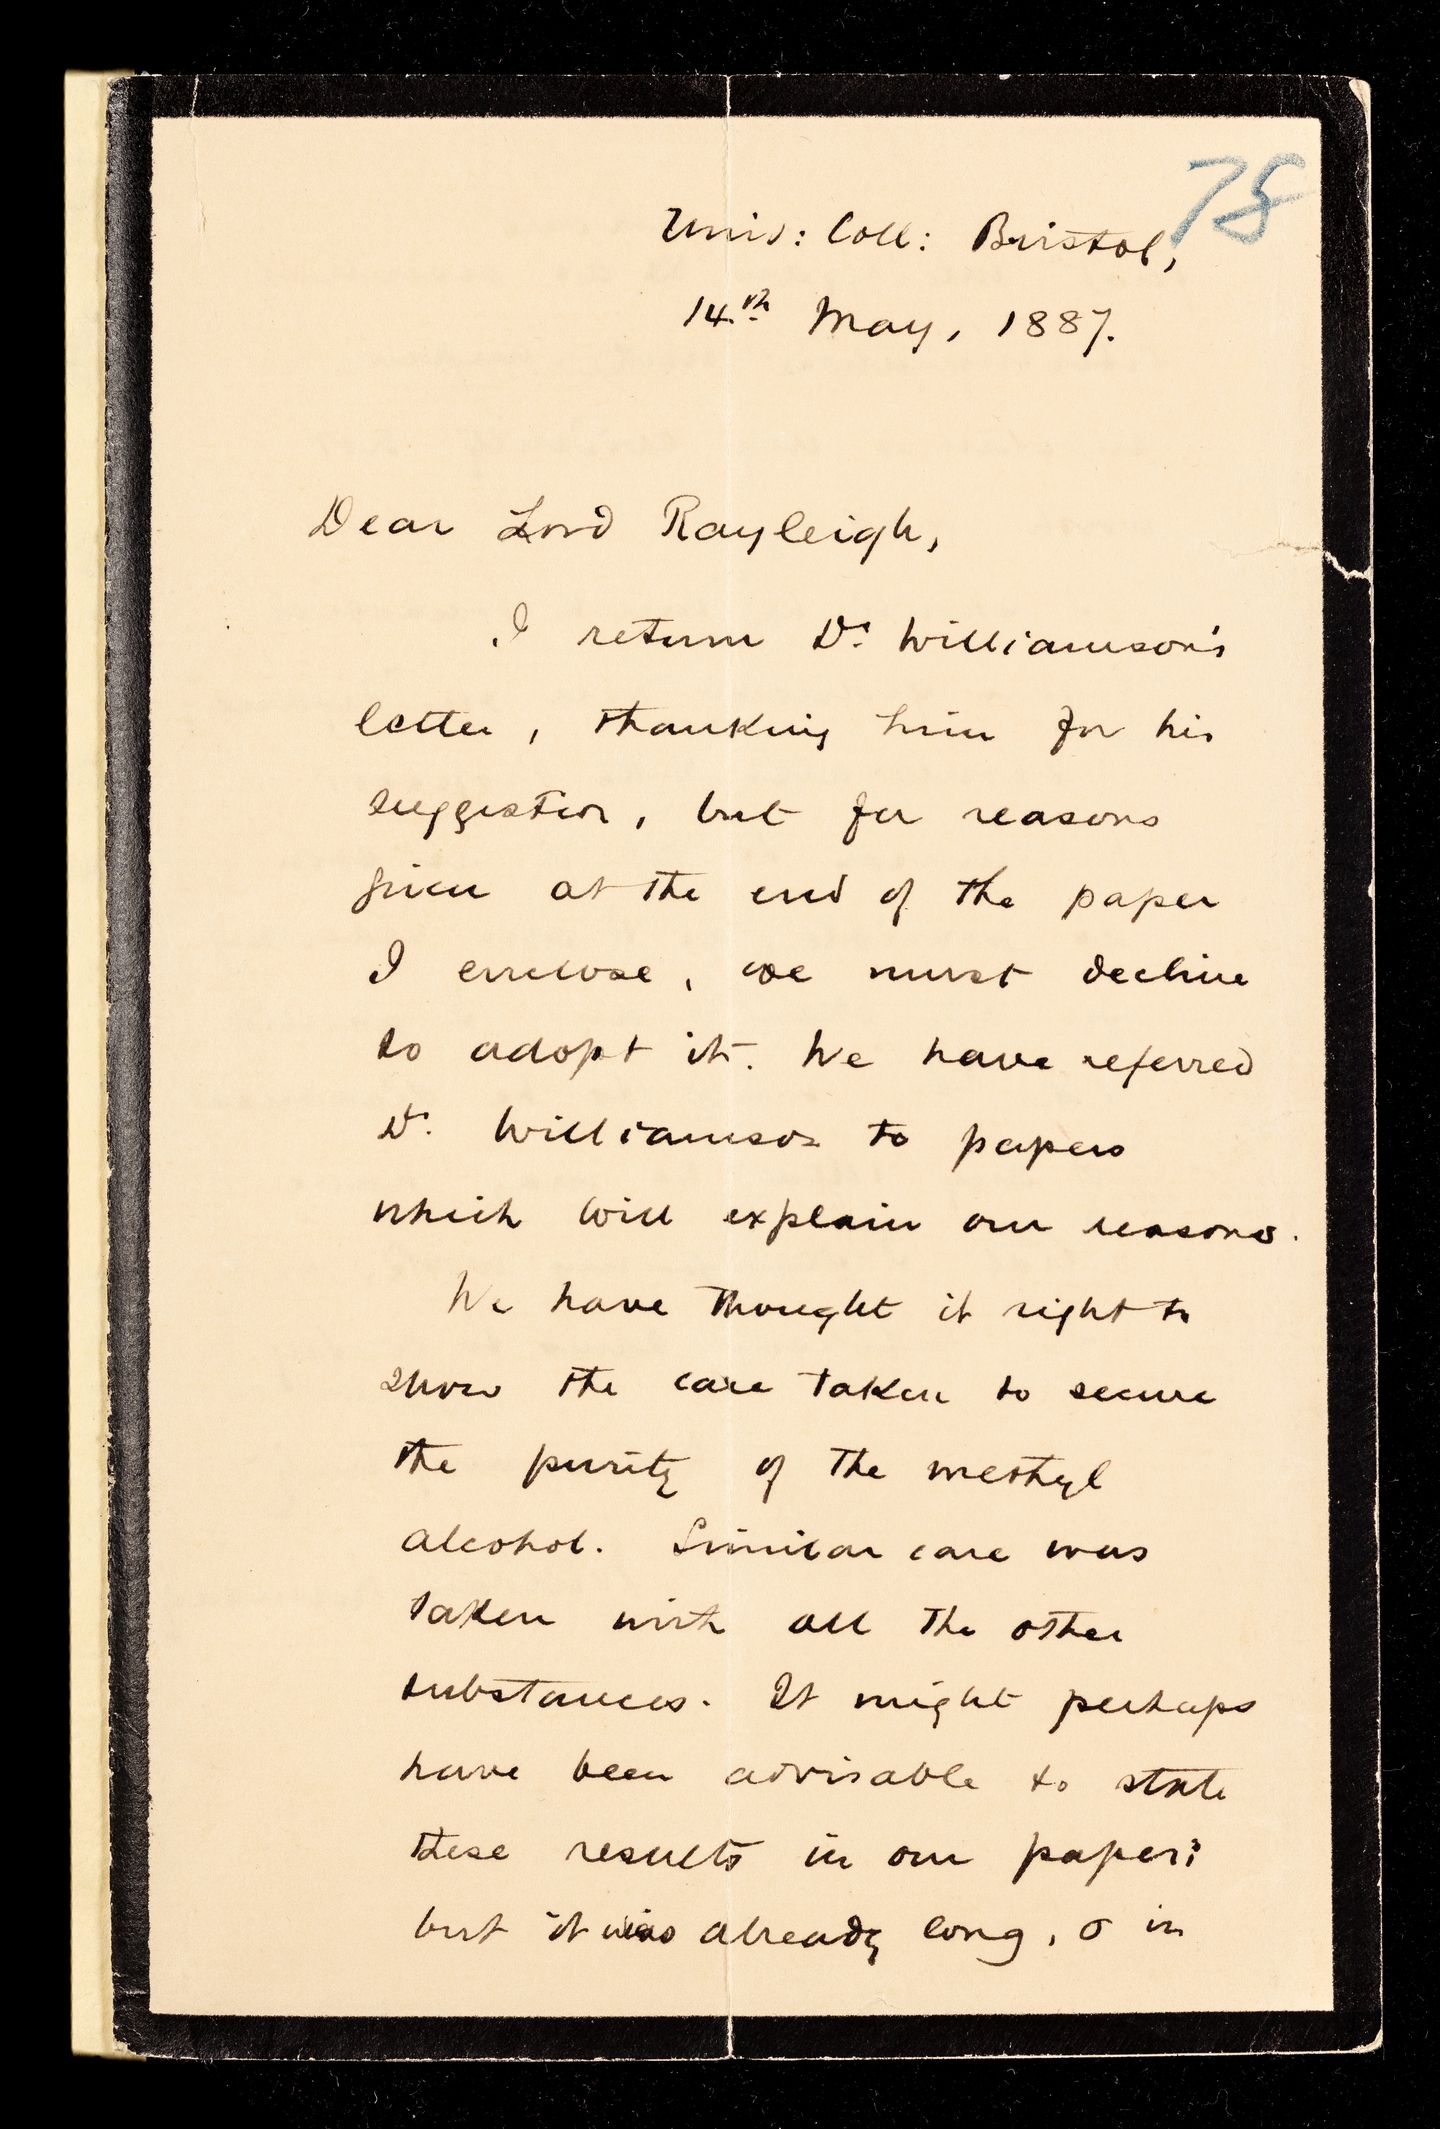 78
Univ: Coll: Bristol,
14th May, 1887.
Dear Lord Rayleigh,
I return Dr. Williamson's
letter, thanking him for his
suggestion, but for reasons
given at the end of the paper
I enclose, we must decline
to adopt it. We have referred
Dr. Williamson to papers
which will explain our reasons.
We have thought it right to
show the care taken to secure
the purity of the methyl
alcohol. Similar care was
taken with all the other
substances. It might perhaps
have been advisable to state
these results in our paper;
but it was already long, & in